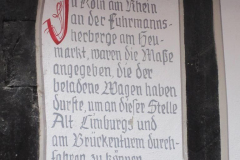 In Köln am Rhein
an der Fuhrmanns-
herberge am Heu-
markt, waren die Maße
angegeben, die der
beladene Wagen haben
durfte, um an dieser Stelle
Alt Limburgs und
am Brückenturm durch-
fahren zu können